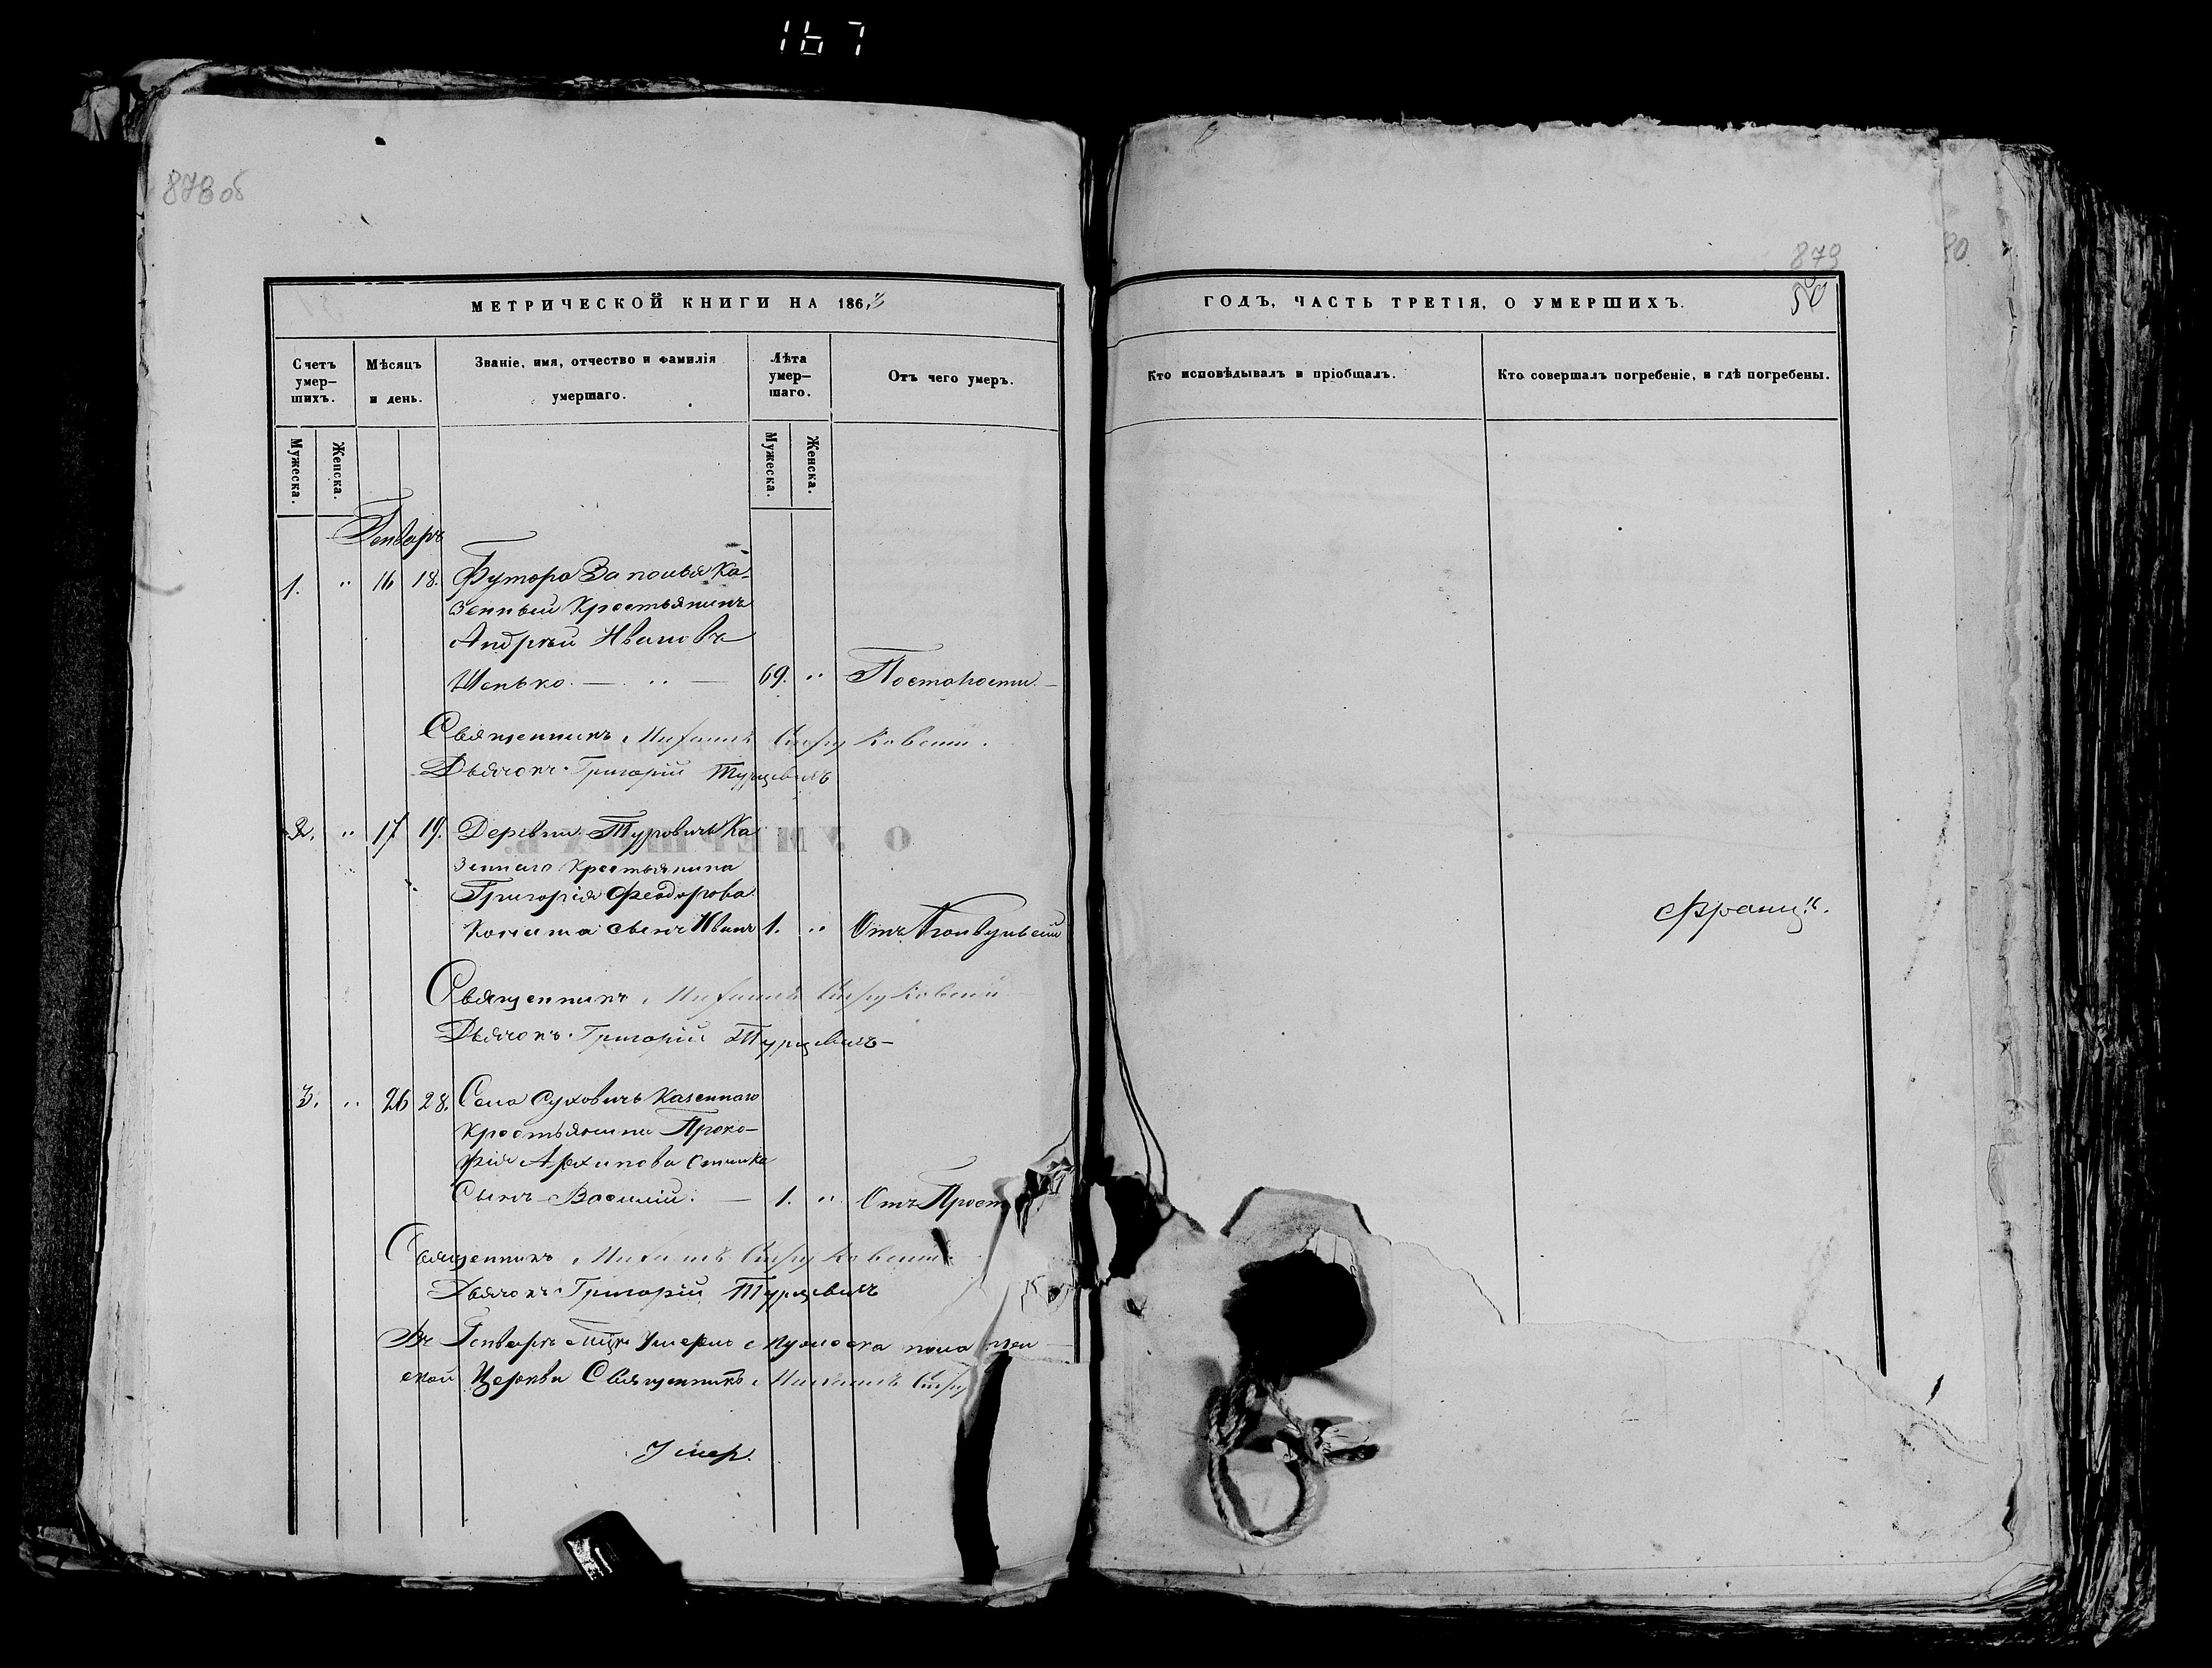 167
878 об
879
80
МЕТРИЧЕСКОЙ КНИГИ НА 1863
ГОДЪ, ЧАСТЬ ТРЕТІЯ, О УМЕРШИХЪ.
50
Счетъ умер–шихъ.
Мѣсяцъ и день.
Званіе, имя, отчество и фамилія умершаго.
Лѣта умер–шаго.
Отъ чего умеръ.
Кто исповѣдывалъ и пріобщалъ.
Кто совершалъ погребеніе, и гдѣ погребены.
Мужеска.
Женска.
Мужеска.
Женска.
Генварь
1. " 16 18. Футора Заполья Ка-
зенный Крестьянинъ
Андрей Ивановъ
Шенько. — " — 69. " По старости. —
Священникъ Михаилъ
Дьячокъ Григорій Турцевичъ
2. " 17 19. Деревни Туровичъ Ка
зеннаго Крестьянина
Григорія Феодорова
сынъ Иванъ 1. " Отъ
Франц.
Священникъ Михаилъ
Дьячокъ Григорій Турцевичъ —
3. " 26 28. Села Суховичъ Казеннаго
Крестьянина Проко-
фія Архипова
Сынъ Василій. — 1. " Отъ Прост
Священникъ Михаилъ
Дьячокъ Григорій Турцевичъ
Въ Генварѣ Умерло Мужеска пола
ской Церкви Священникъ Михаилъ
Умер.